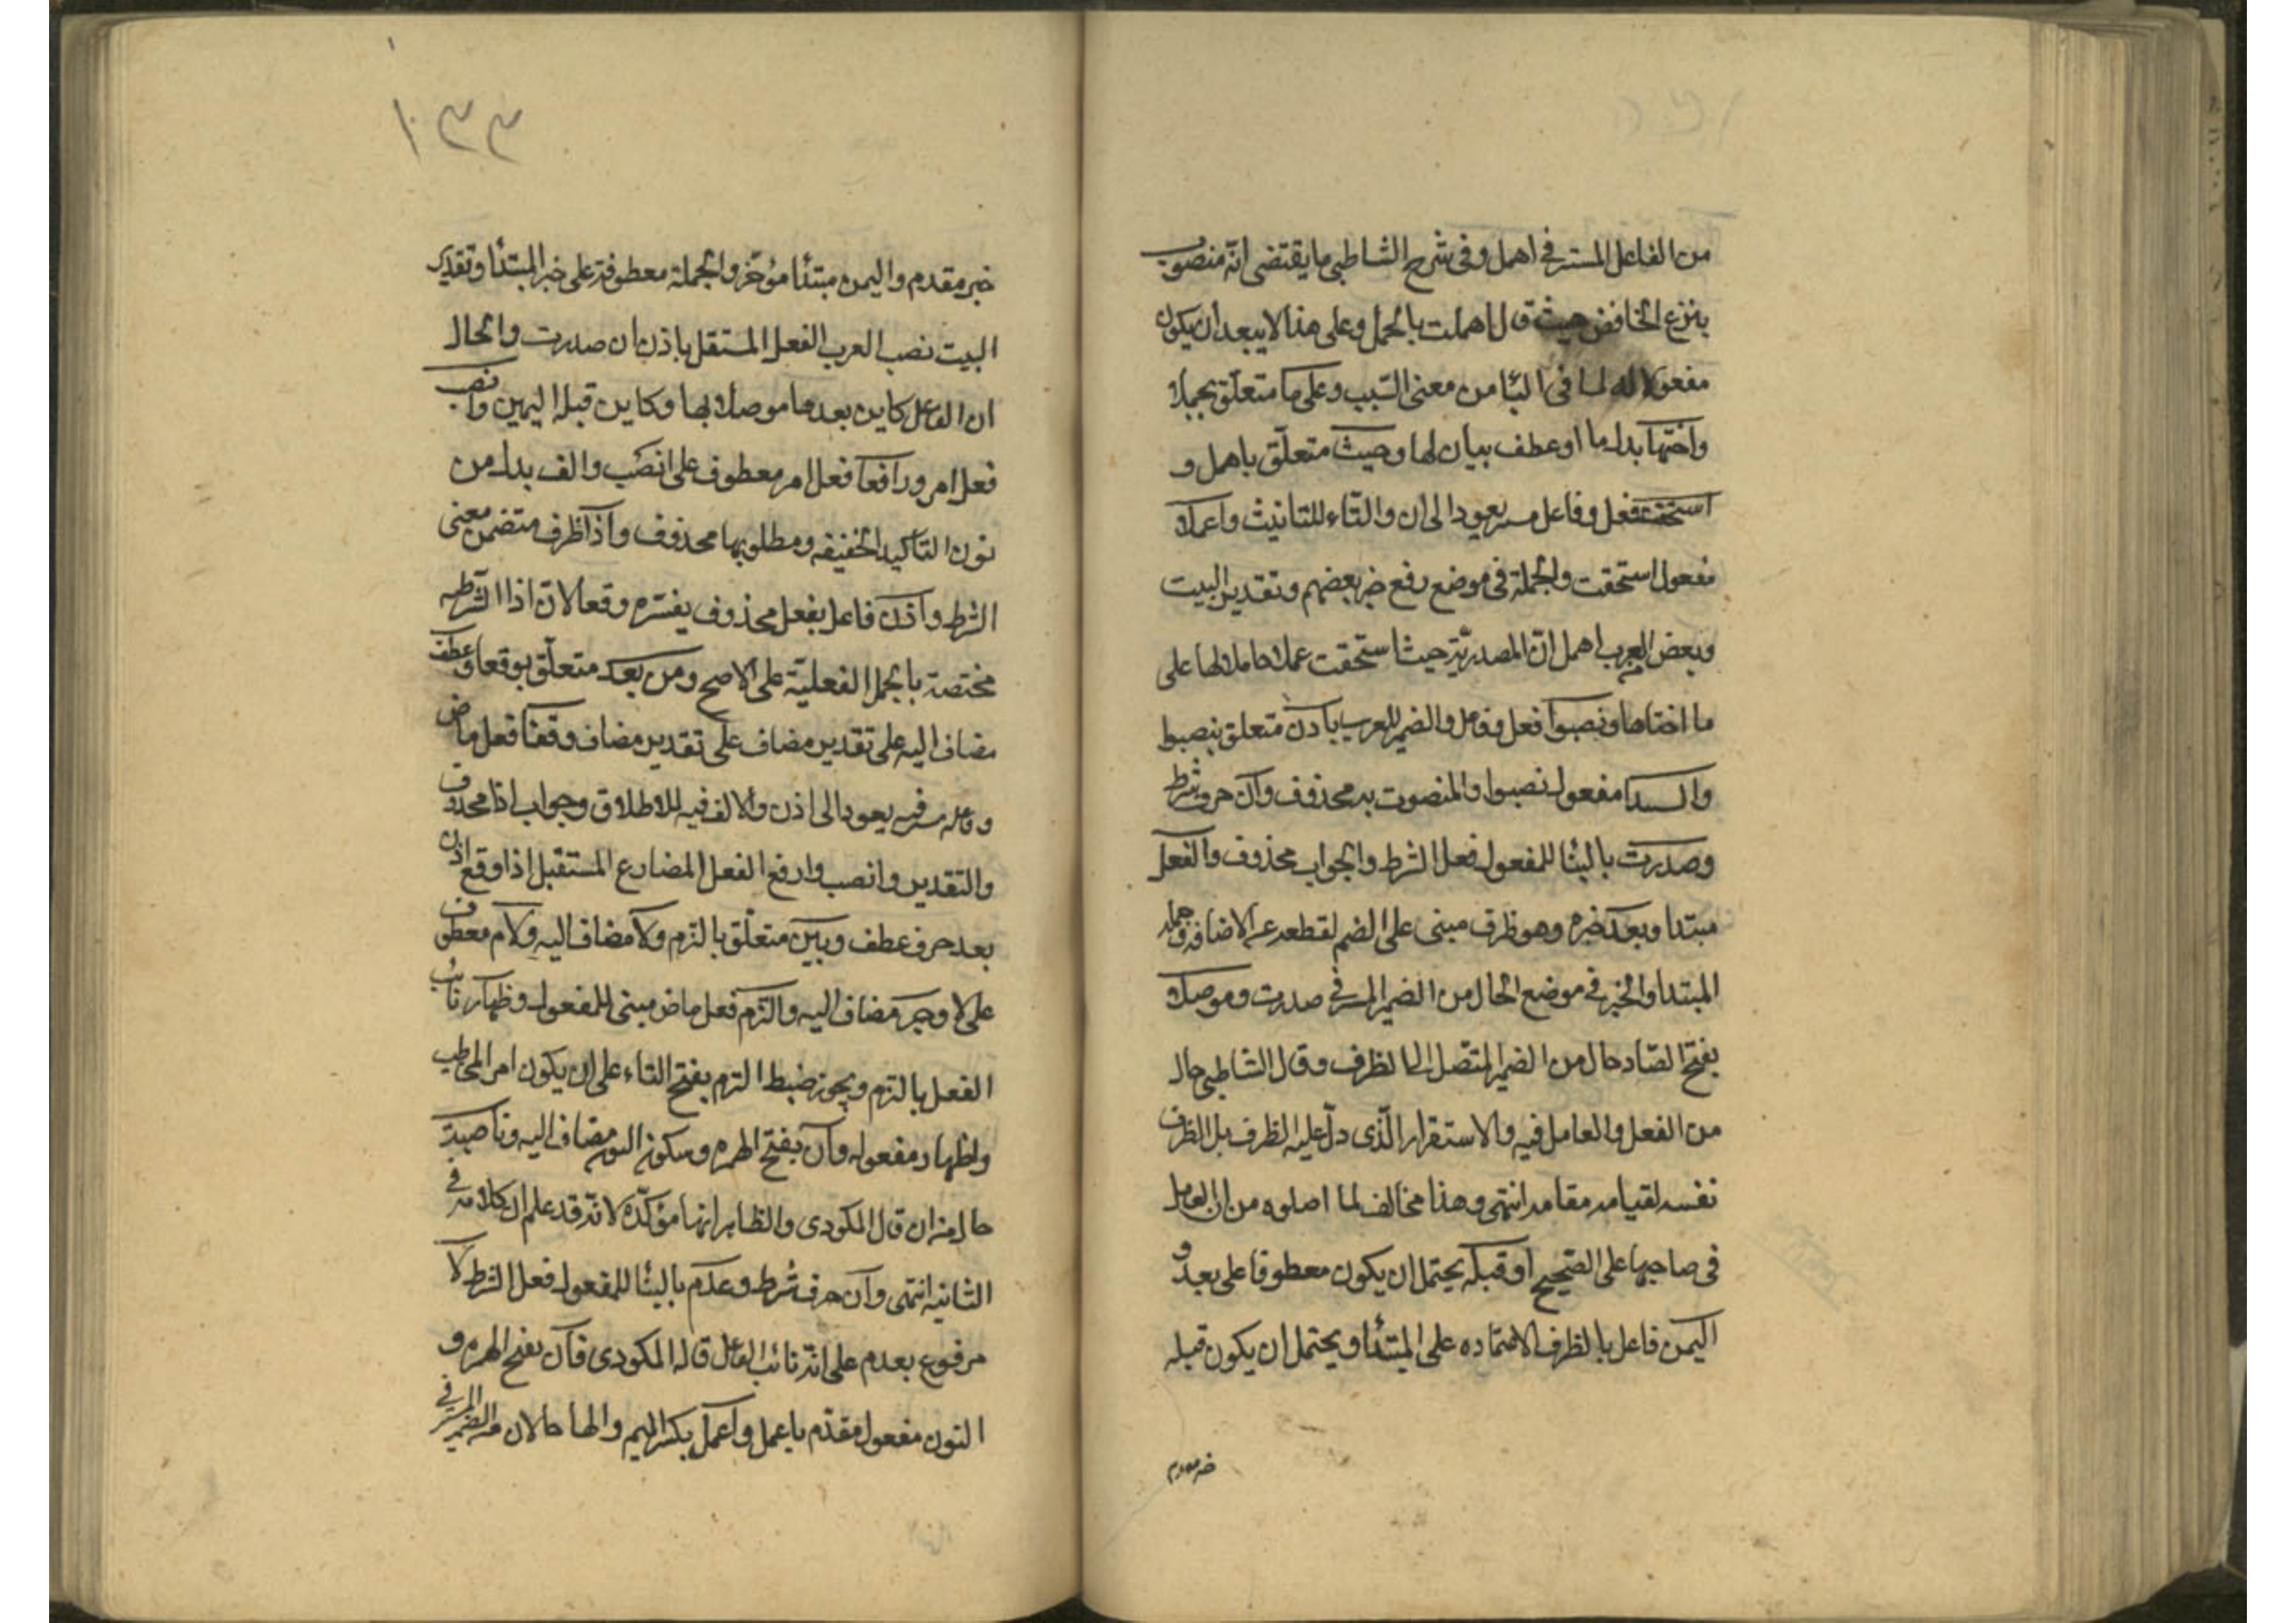 من الفاعل المستتر في اهمل وفي شرح الشاطبي ما يقتضى انّه منصوب
بنزع الخافض حيث قال اهملت بالحمل وعلى هذا لا يبعد أن يكون
مفعولا له لما في البا من معنى السّبب وعلى ما متعلّق بحملا
واختها بدل ما او عطف بيان لها وحيث متعلّق باهمل و
استحقت فعل وفاعل مستتر يعود الى ان والتاء للتانيث وعملا
مفعول استحقت والجملة في موضع رفع خبر بعضهم وتقدير البيت
وبعض العرب اهمل انّ المصدريّة حيث استحقت عملا حاملا لها على
ما اختها ونصبوا فعل وفاعل والضمير للعرب باذن متعلق بنصبوا
والمستقبلا مفعول نصبوا والمنصوب به محذوف وان حرف شرط
وصدرت بالبنا للمفعول فعل الشرط والجواب محذوف والفعل
مبتدا وبعد خبره وهو ظرف مبنى على الضم لقطعه عن الاضافة وجملة
المبتدا والخبر في موضع الحال من الضمير المستتر في صدرت وموصلا
بفتح الصّاد حال من الضمير المتّصل الى الظرف وقال الشاطبي حال
من الفعل والعامل فيه والاستقرار الّذى دلّ عليه الظرف بل الظرف
نفسه لقيامه مقامه انتهى وهذا مخالف لما اصلوه من ان العامل
فى صاحبها على الصّحيح أو قبله يحتمل ان يكون معطوفا على بعد و
اليمين فاعل بالظرف لاعتماده على المبتدأ ويحتمل ان يكون قبله
خبر مقدم
١٣٣
خبر مقدم واليمين مبتدأ مؤخّر والجملة معطوفة على خبر المبتدأ وتقدير
البيت نصب العرب الفعل المستقل باذن ان صدرت والحال
ان الفاعل كاين بعدها موصلا بها وكاين قبله اليمين وانصب
فعل امر ورافعا فعل امر معطوف على انصب والف بدل من
نون التأكيد الخفيفه ومطلوبها محذوف واذا ظرف متضمن معنى
الشرط واذن فاعل بفعل محذوف يفسّره وقعا لانّ اذا الشرطيه
مختصة بالجمل الفعليّة على الاصح ومن بعد متعلّق بوقعا وعطف
مضاف اليه على تقدير مضاف على تقدير مضاف وقعا فعل ماض
وفاعله مستتر فيه يعود الى اذن والالف فيه للاطلاق وجواب اذا محذوف
والتقدير وانصب وارفع الفعل المضارع المستقبل اذا وقع اذن
بعد حرف عطف وبين متعلّق بالتزم ولا مضاف اليه ولام معطوف
على لا وجر مضاف اليه والتزم فعل ماض مبنى للمفعول وظهار نائب
الفعل بالتزم ويجوز ضبط التزم بفتح التاء على ان يكون امر المخاطب
واظهار مفعوله وان بفتح الهمزه وسكون النون مضاف اليه وناصبة
حال من ان قال المكودى والظاهر انها مؤكّدة لانّه قد علم ان كلامه في
الثانية انتهى وان حرف شرط وعدم بالبنا للمفعول فعل الشرط لا
مرفوع بعدم على انّه نائب الفاعل قاله المكودى فان بفتح الهمزه و
النون مفعول مقدّم باعمل واعمل بكسر الميم والها حالان من الضمير المستتر في